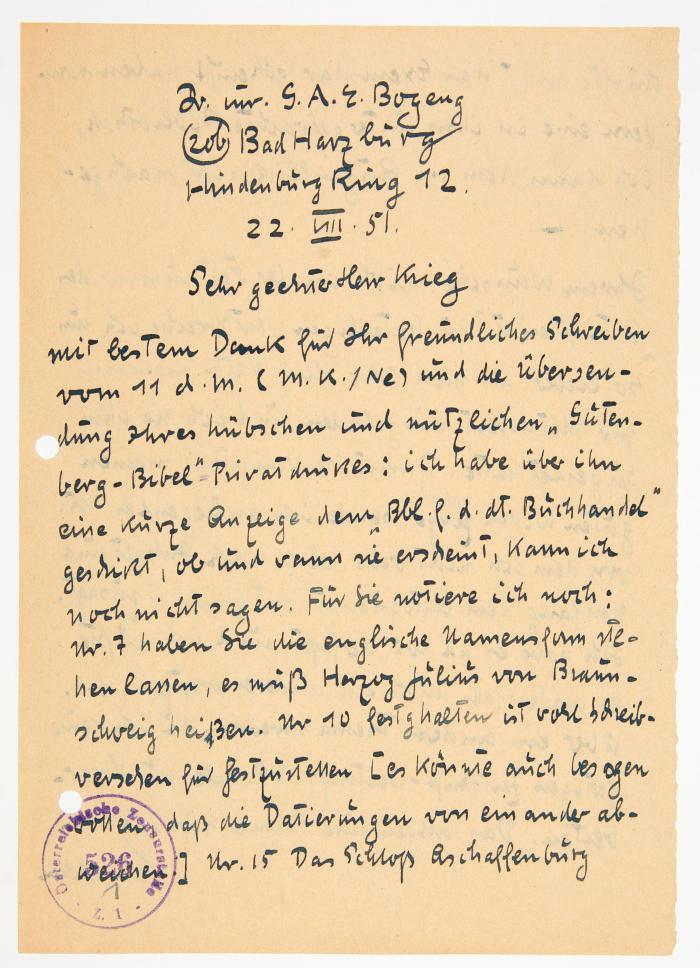 Dr. iur. G. A. E. Bogeng
(20b) Bad Harzburg
Hindenburg Ring 12.
22. VIII. 51.
Sehr geehrter Herr Krieg
mit bestem Dank für Ihr freundliches Schreiben
vom 11 d. M. (M.K./Ne) und die Übersen-
dung Ihres hübschen und nützlichen „Guten-
berg-Bibel" Privatdrukes: ich habe über ihn
eine kurze Anzeige dem „Bbl. f. d. dt. Buchhandel"
geschikt, ob und wann sie erscheint, kann ich
noch nicht sagen. Für Sie notiere ich noch:
Nr. 7 haben Sie die englische Namensform ste-
hen lassen, es muß Herzog Julius von Braun-
schweig heißen. Nr 10 festghalten ist wohl Schreib-
versehen für festzustellen [es könnte auch besagen
wollen, daß die Datierungen von einander ab-
weichen.] Nr. 15 Das Schloß Aschaffenburg
Österreichische Zensurstelle
536
1
Z. 1